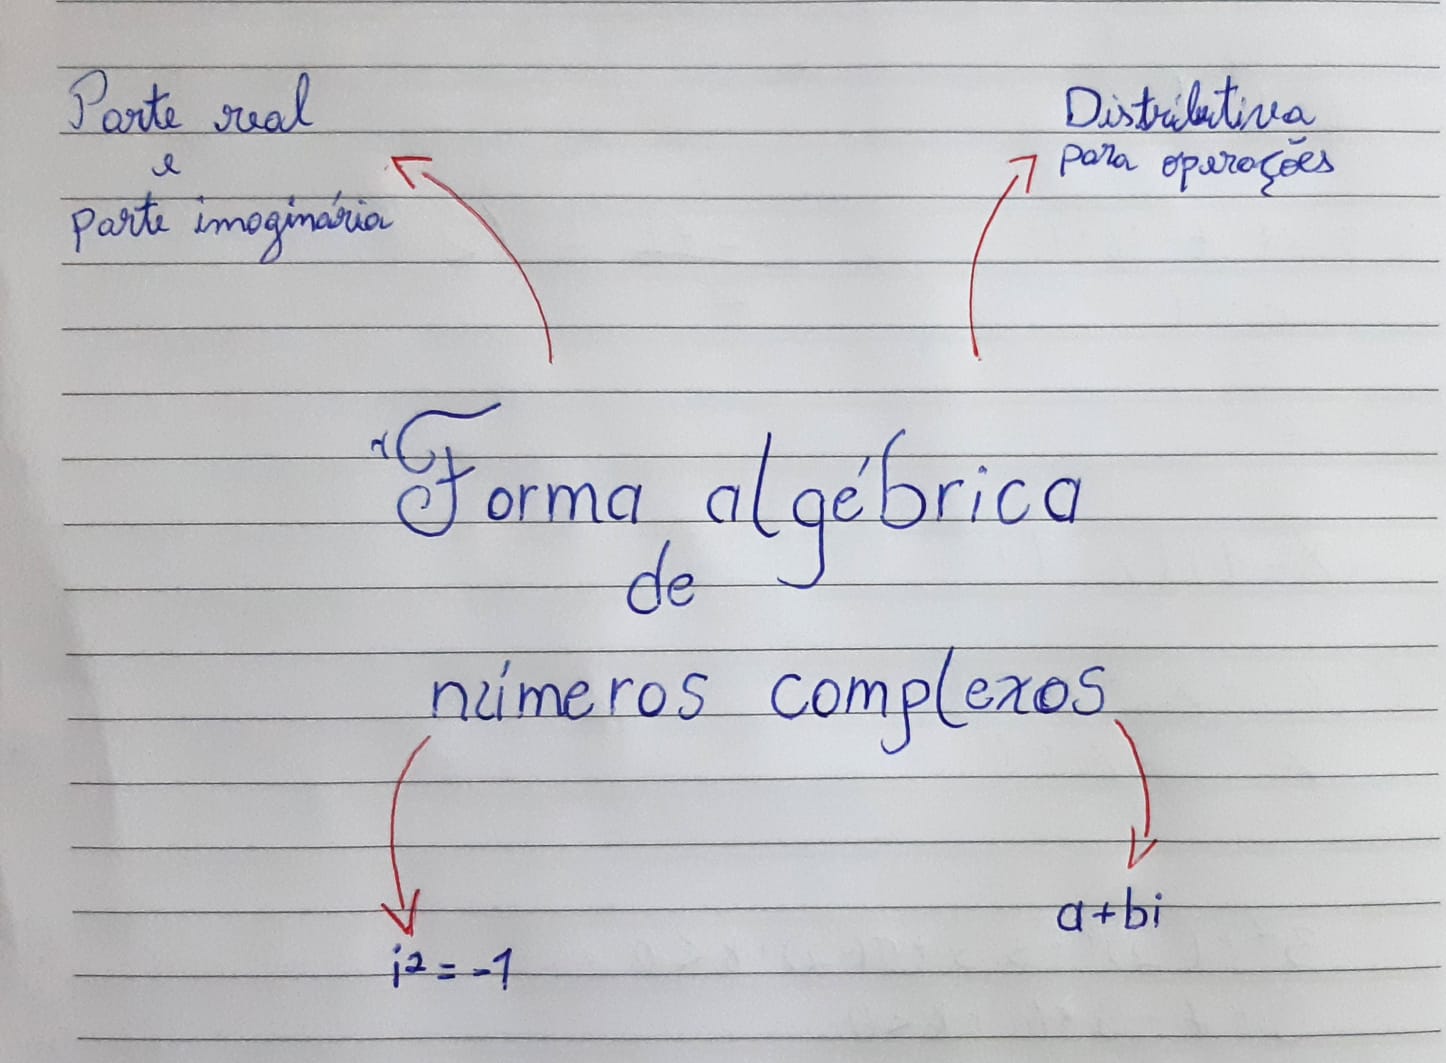 Parte real
e
parte imaginária
Distributiva
para operações
Forma algébrica
de
números complexos
i² = -1
a+bi